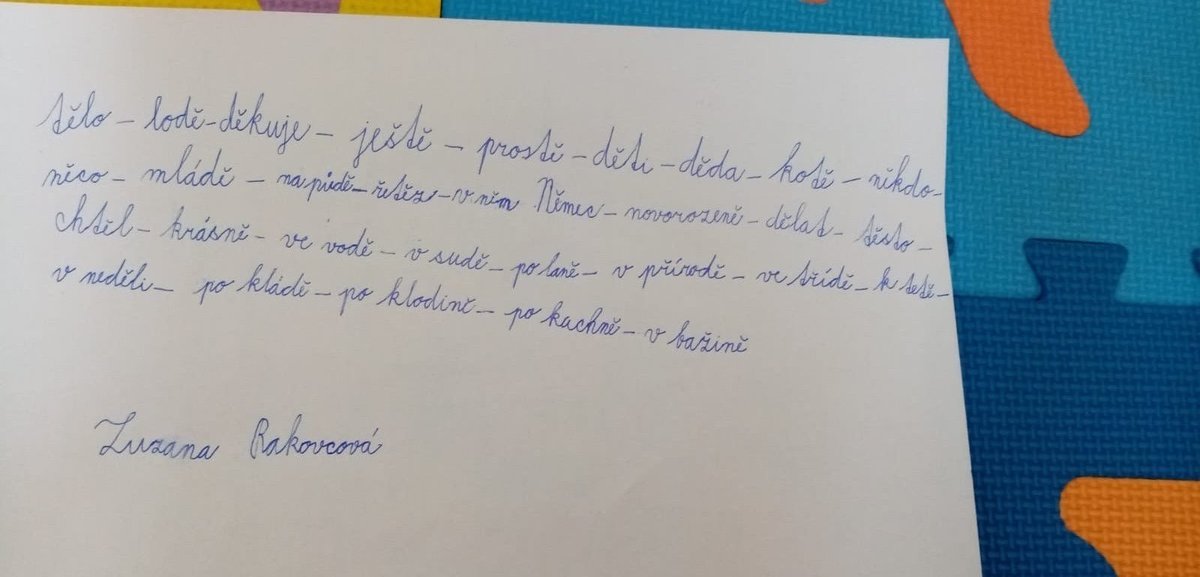 tělo – lodě - děkuje – ještě – prostě – děti – děda – kotě – někdo -
něco – mládě – na půdě – řetěz – v něm Němec – novorozeně – dělat – těsto –
chtěl – krásně – ve vodě – v sudě – po laně – v přírodě – ve třídě – k tetě –
v neděli – po kládě – po klodině – po kachně – v bažině
Zuzana Rakovcová